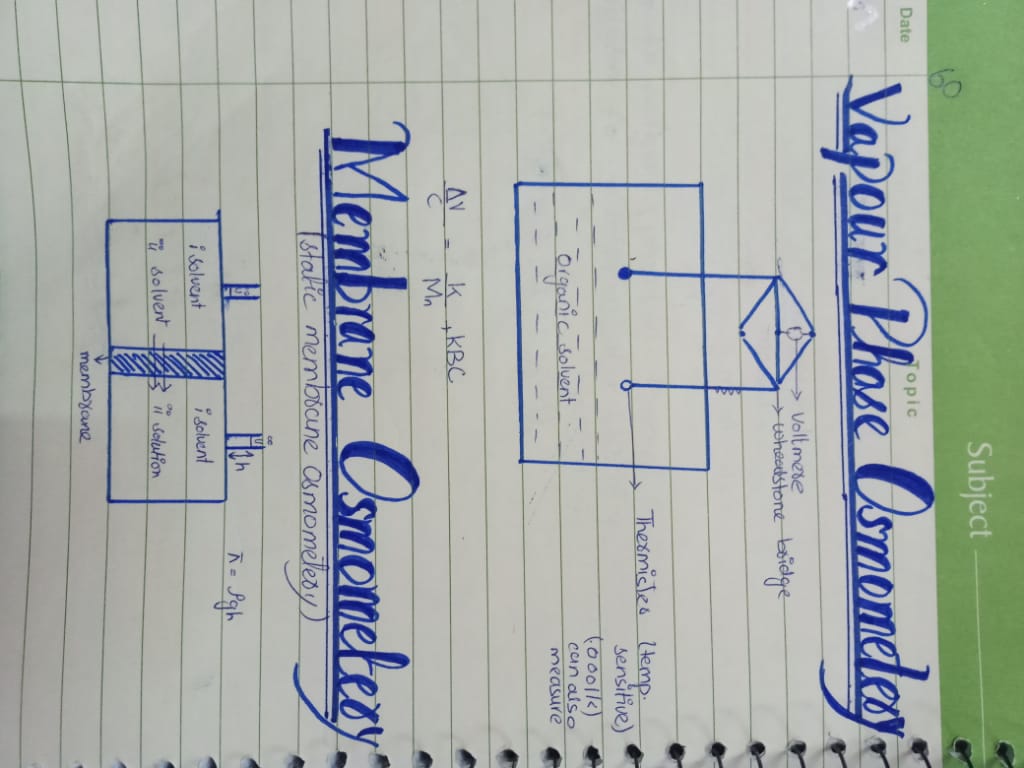 Subject
Date
Topic
60
Vapour Phase Osmometery
→ voltmere
→ wheatstone bridge
organic solvent
Thermicles (temp.
sensitive)
can also
measure
ΔV/C = K/Mn + KBC
Membrane Osmometery
(static membrane osmometery)
i solvent
ii solvent
i solvent
ii solution
h
membrane
π = ρgh